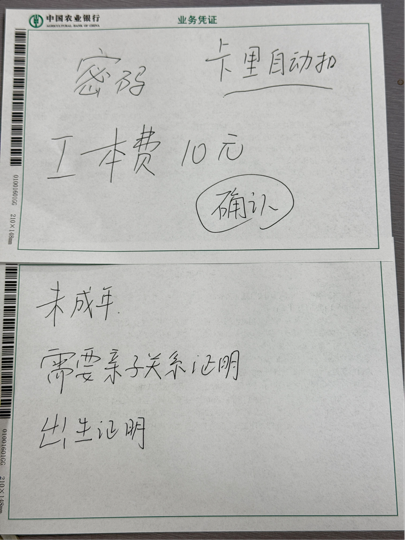 中国农业银行
AGRICULTURAL BANK OF CHINA
业务凭证
密码
卡里自动扣
工本费 10元
确认
010016016G 210×148mm
未成年.
需要亲子关系证明
出生证明
010016016G 210×148mm